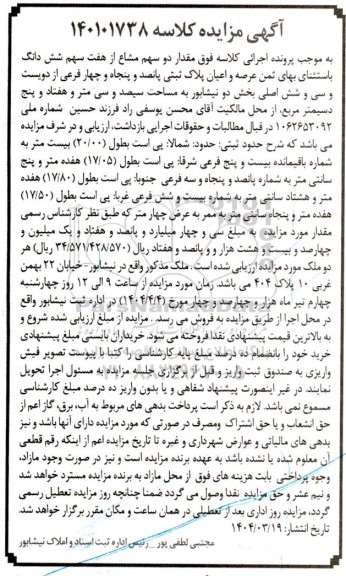 آگهی مزایده کلاسه ۱۴۰۱۰۱۷۳۸
به موجب پرونده اجرائی کلاسه فوق مقدار دو سهم مشاع از هفت سهم شش دانگ
باستثنای بهای ثمن عرصه و اعیان پلاک ثبتی پانصد و پنجاه و چهار فرعی از دویست
و سی و شش اصلی بخش دو نیشابور به مساحت سیصد و سی متر و هفتاد و پنج
دسیمتر مربع، از محل مالکیت آقای محسن یوسفی راد فرزند حسین شماره ملی
۱۰۶۲۶۵۳۰۹۲ در قبال مطالبات و حقوقات اجرایی بازداشت، ارزیابی و در شرف مزایده
می باشد که شرح حدود ثبتی: حدود: شمالا: پی است بطول (۲۰/۰۰) بیست متر به
شماره باقیمانده بیست و پنج فرعی شرقا: پی است بطول (۱۷/۰۵) هفده متر و پنج
سانتی متر به شماره پانصد و پنجاه و سه فرعی جنوبا: پی است بطول (۱۷/۸۰) هفده
متر و هشتاد سانتی متر به شماره بیست و شش فرعی غربا: پی است بطول (۱۷/۵۰)
هفده متر و پنجاه سانتی متر به ممر به عرض چهار متر که طبق نظر کارشناس رسمی
مقدار مورد مزایده به مبلغ سی و چهار میلیارد و پانصد و هفتاد و یک میلیون و
چهارصد و بیست و هشت هزار و پانصد و هفتاد ریال (۳۴/۵۷۱/۴۲۸/۵۷۰ ریال) هر
دو ملک مورد مزایده ارزیابی شده است. ملک مذکور واقع در نیشابور - خیابان ۲۲ بهمن
غربی ۱۰ پلاک ۴۰۴ می باشد. زمان مورد مزایده از ساعت ۹ الی ۱۲ روز چهارشنبه
چهارم تیر ماه هزار و چهارصد و چهار مورخ (۱۴۰۴/۴/۴) در اداره ثبت نیشابور واقع
در محل اجرا از طریق مزایده به فروش می رسد. مزایده از مبلغ ارزیابی شده شروع و
به بالاترین قیمت پیشنهادی نقدا فروخته می شود. خریداران بایستی مبلغ پیشنهادی
خرید خود را بانضمام ده درصد مبلغ پایه کارشناسی را کتبا با پیوست تصویر فیش
واریزی به صندوق ثبت واریز و قبل از برگزاری جلسه مزایده به مسئول اجرا تحویل
نمایند. در غیر اینصورت پیشنهاد شفاهی و یا بدون واریز ده درصد مبلغ کارشناسی
مسموع نمی باشد. لازم به ذکر است پرداخت بدهی های مربوط به آب، برق، گاز اعم از
حق انشعاب و یا حق اشتراک ومصرف در صورتی که مورد مزایده دارای آنها باشد و نیز
بدهی های مالیاتی و عوارض شهرداری و غیره تا تاریخ مزایده اعم از اینکه رقم قطعی
آن معلوم شده یا نشده باشد به عهده برنده مزایده است و نیز در صورت وجود مازاد،
وجوه پرداختی بابت هزینه های فوق از محل مازاد به برنده مزایده مسترد خواهد شد
و نیم عشر و حق مزایده نقدا وصول می گردد ضمنا چنانچه روز مزایده تعطیل رسمی
گردد، مزایده روز اداری بعد از تعطیلی در همان ساعت و مکان مقرر برگزار خواهد شد.
تاریخ انتشار: ۱۴۰۴/۰۳/۱۹
مجتبی لطفی پور _ رئیس اداره ثبت اسناد و املاک نیشابور